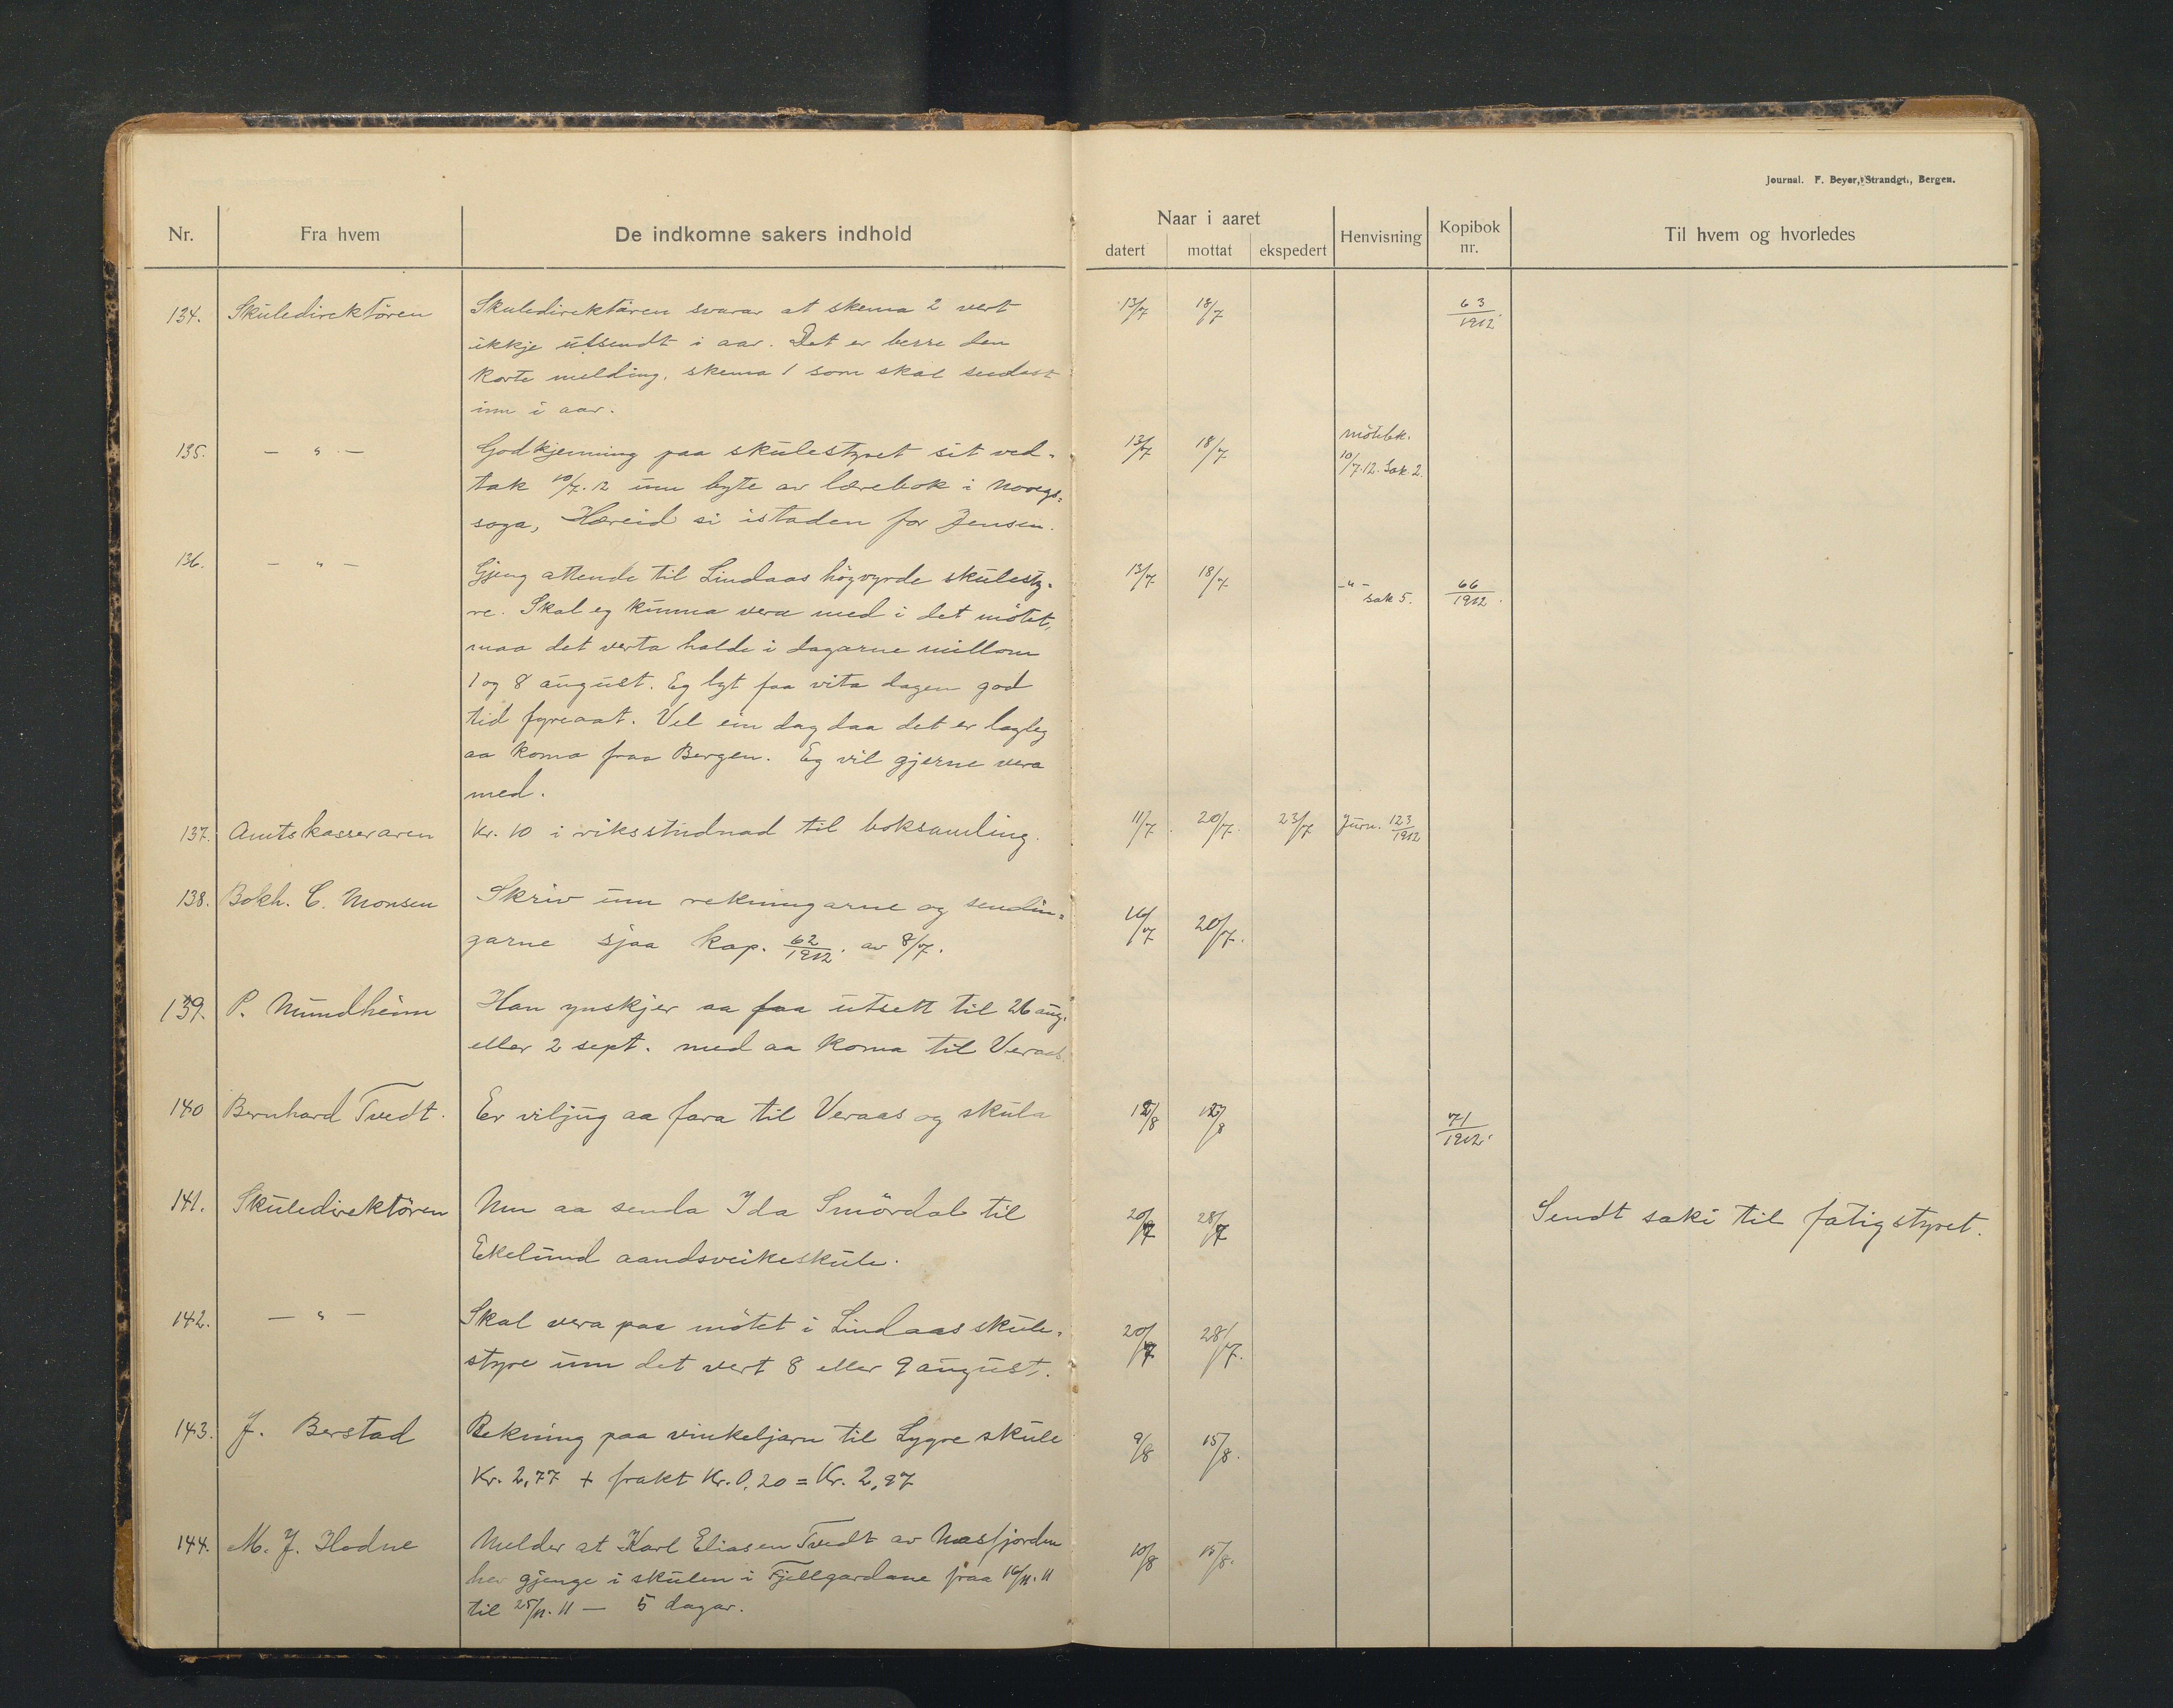 Journal. F. Beyer, Strandgt., Bergen.
Nr. Fra hvem De indkomne sakers indhold Naar i aaret Henvisning Kopibok nr. Til hvem og hvorledes
datert mottat ekspedert
134. Skuledirektören Skuledirektören svarar at skema 2 vert 13/7 18/7 63/1912.
ikkje utsendt i aar. Det er berre den
korte melding, skema 1 som skal sendast
inn i aar.
135. — " — Godkjenning paa skulestyret sit ved- 13/7 18/7 mötebk.
tak 10/7.12 um byte av lærebok i Noregs- 10/7.12. Sak. 2.
soga, Hæreid si istaden for Jensen.
136. — " — Gjeng attende til Lindaas högvyrde skulesty- 13/7 18/7 -"- sak 5. 66/1912.
re. Skal eg kunna vera med i det mötet,
maa det verta halde i dagarne millom
1 og 8 august. Eg lyt faa vita dagen god
tid fyreaat. Vel ein dag daa det er lagleg
aa koma fraa Bergen. Eg vil gjerne vera
med.
137. Amtskasseraren Kr. 10 i riksstudnad til boksamling. 11/7. 20/7. 23/7 Jurn. 123/1912
138. Bokh. C. Monsen Skriv um rekningarne og sendin- 16/7 20/7.
garne sjaa kop. 62/1912. av 8/7.
139. P. Mundheim Han ynskjer aa faa utsett til 26 aug.
eller 2 sept. med aa koma til Veraas.
140 Bernhard Tvedt. Er viljug aa fara til Veraas og skula 12/8 71/1912.
141. Skuledirektören Um aa senda Ida Smördal til 20/7 28/7 Sendt saki til fatigstyret.
Ekelund aandsveikeskule.
142. — " — Skal vera paa mötet i Lindaas skule- 20/7 28/7.
styre um det vert 8 eller 9 august.
143. J. Berstad Rekning paa vinkeljarn til Lygre skule 9/8 15/8.
Kr. 2,77 + frakt Kr. 0,20 = Kr. 2,97
144. M. J. Hodne Melder at Karl Eliasen Tvedt av Masfjorden 10/8 15/8.
hev gjenge i skulen i Fjellgardane fraa 16/11.11
til 25/11.11 — 5 dagar.